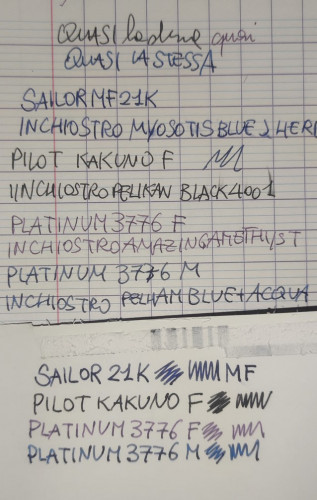 QUASI quasi
QUASI LA STESSA
SAILOR MF 21K
INCHIOSTRO MYOSOTIS BLUE J HER
PILOT KAKUNO F
INCHIOSTRO PELIKAN BLACK 4001
PLATINUM 3776 F
INCHIOSTRO AMAZING AMETHYST
PLATINUM 3776 M
INCHIOSTRO PELHAM BLUE + ACQUA
SAILOR 21K MF
PILOT KAKUNO F
PLATINUM 3776 F
PLATINUM 3776 M